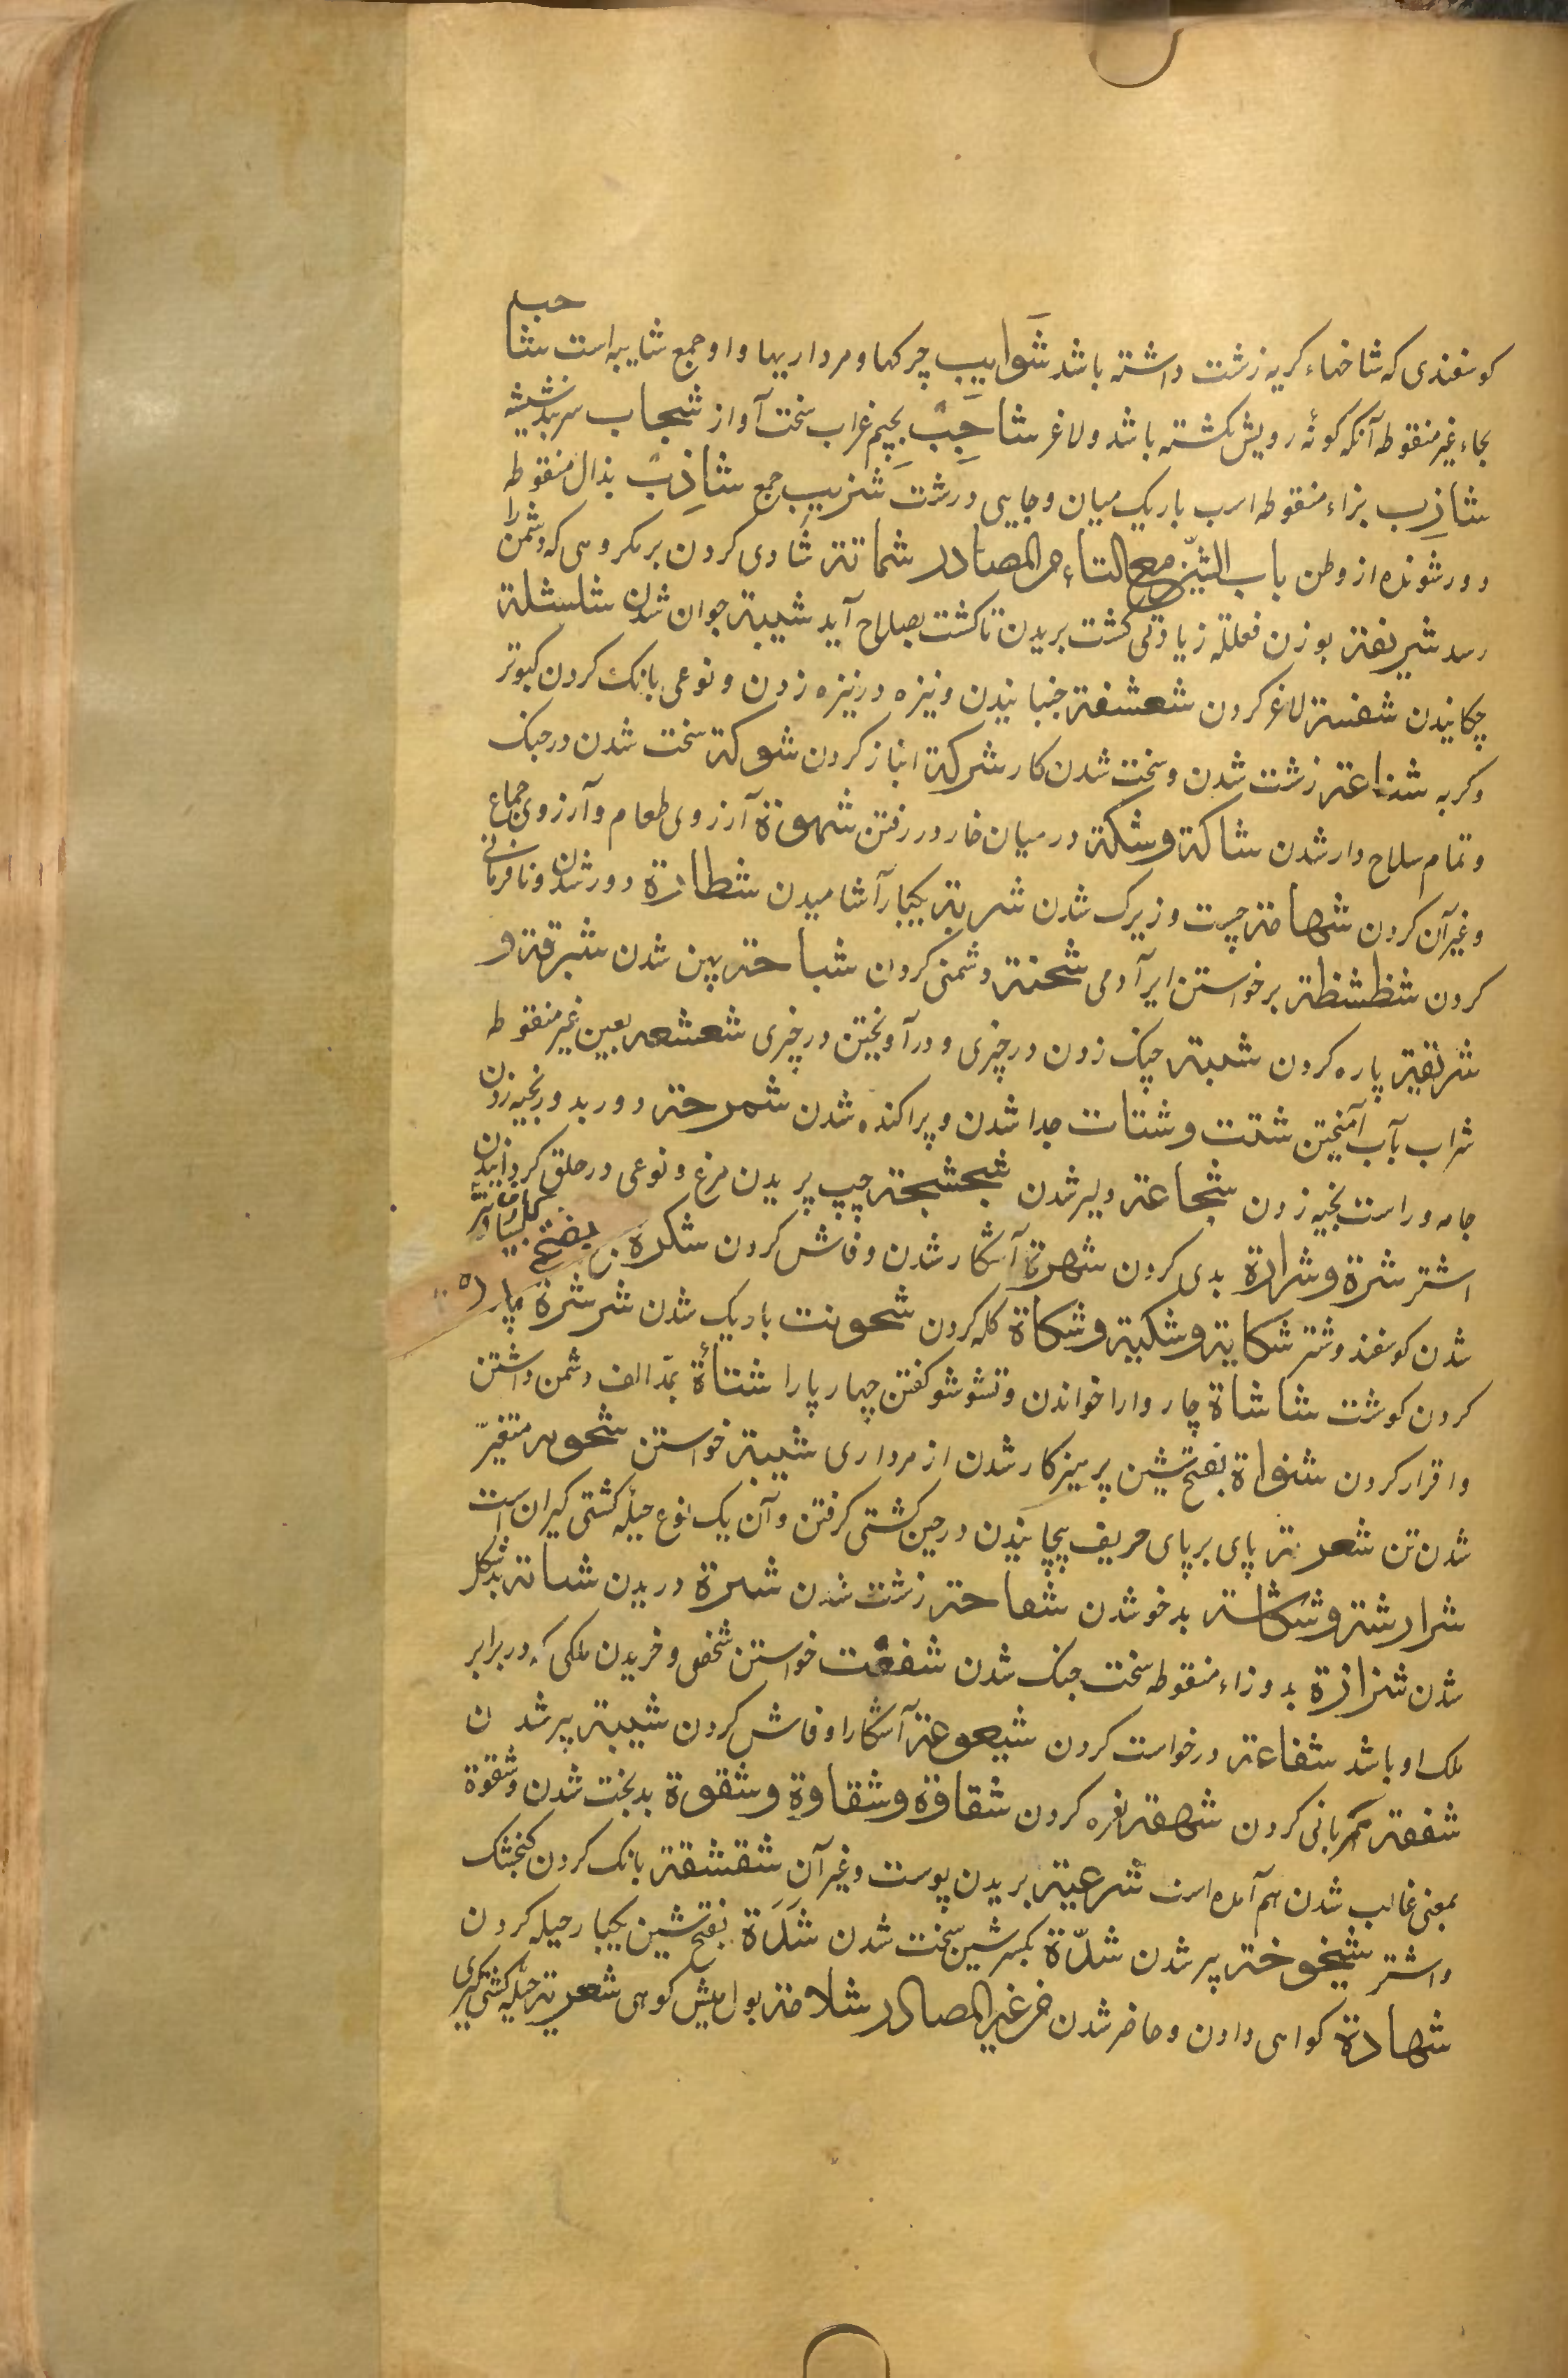 کوسفندی که شاخهاء کریه زشت داشته باشد شَوایب چرکها و مرداریها و او جمع شایبه است شاحب
بحاء غیر منقوطه آنکه کونهٔ رویش بکشته باشد و لاغر شاحِبْ بجیم غراب سخت آواز شجاب سربند شیشه
شازِب بزاء منقوطه اسب باریک میان و جایی درشت شزیب جمع شاذِب بذال منقوطه
دور شونده از وطن باب الشین مع التاء من المصادر شماتة شادی کردن بر مکروهی که دشمن را
رسد شریفة بوزن فعللة زیادتی کشت بریدن تا کشت بصلاح آید شیبة جوان شدن شلشلة
چکانیدن شفسة لاغر کردن شعشفة جنبانیدن و نیزه در نیزه زدن و نوعی بانک کردن کبوتر
و کربه شناعة زشت شدن و سخت شدن کار شرکة انباز کردن شوکة سخت شدن در جنک
و تمام سلاح دار شدن شاکة و شکة در میان خار در رفتن شهوة آرزوی طعام و آرزوی جماع
و غیر آن کردن شهامة چست و زیرک شدن شربة یکبار آشامیدن شطارة دور شدن و نافرمانی
کردن شظشظة برخواستن ایر آدمی شحنة دشمنی کردن شباحة پهن شدن شبرقة و
شرنقة پاره کردن شبثة چنک زدن در چیزی و درآویختن در چیزی شعشعه بعین غیر منقوطه
شراب بآب آمیختن شتت و شتات جدا شدن و پراکنده شدن شمرخة دور بدور بخیه زدن
جامه و راست بخیه زدن شجاعة دلیر شدن شجشجة چپ پریدن مرغ و نوعی در حلق کردانیدن
اشتر شرة و شرارة بدی کردن شهرة آشکار شدن و فاش کردن شکرة بفتح بسیار شیر
شدن کوسفند و شتر شکایة و شکیة و شکاة کله کردن شحونت باریک شدن شرشرة پاره
کردن کوشت شاشاة چاروا را خواندن و تشو شو کفتن چهار پا را شتأة بمد الف دشمن داشتن
و اقرار کردن شنواة بفتح شین پرهیزکار شدن از مرداری شیبة خواستن شحوبه متغیر
شدن تن شعربة پای بر پای حریف پیچانیدن در حین کشتی کرفتن و آن یک نوع حیلهٔ کشتی کیران است
شرارشة و شکاسة بدخو شدن شقاحة زشت شدن شبرة دریدن شامة بدشکل
شدن شزازة بدو زاء منقوطه سخت جنک شدن شفعت خواستن شخصی و خریدن ملکی که در برابر
ملک او باشد شفاعة درخواست کردن شیعوعة آشکارا و فاش کردن شیبة پیر شدن
شفقة مهربانی کردن شهقة نعره کردن شقاوة و شقاوة و شقوة بدبخت شدن و شقوة
بمعنی غالب شدن هم آمده است شرعیة بریدن پوست و غیر آن شقشقة بانک کردن کنجشک
و اشتر شیخوخة پیر شدن شدّة بکسر شین سخت شدن شَدَة بفتح شین یکبار حیله کردن
شهادة کواهی دادن و حاضر شدن من غیر المصادر شلامة بول میش کوهی شعربة حیلهٔ کشتی کیری